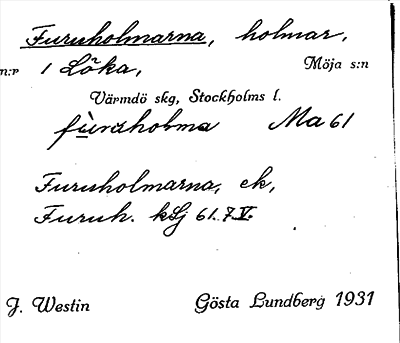 Furuholmarna, holmar,
n:r 1 Löka, Möja s:n
Värmdö skg, Stockholms l.
fùruholma Ma 61
Furuholmarna, ek,
Furuh. kLj 61. 7 V.
J. Westin Gösta Lundberg 1931